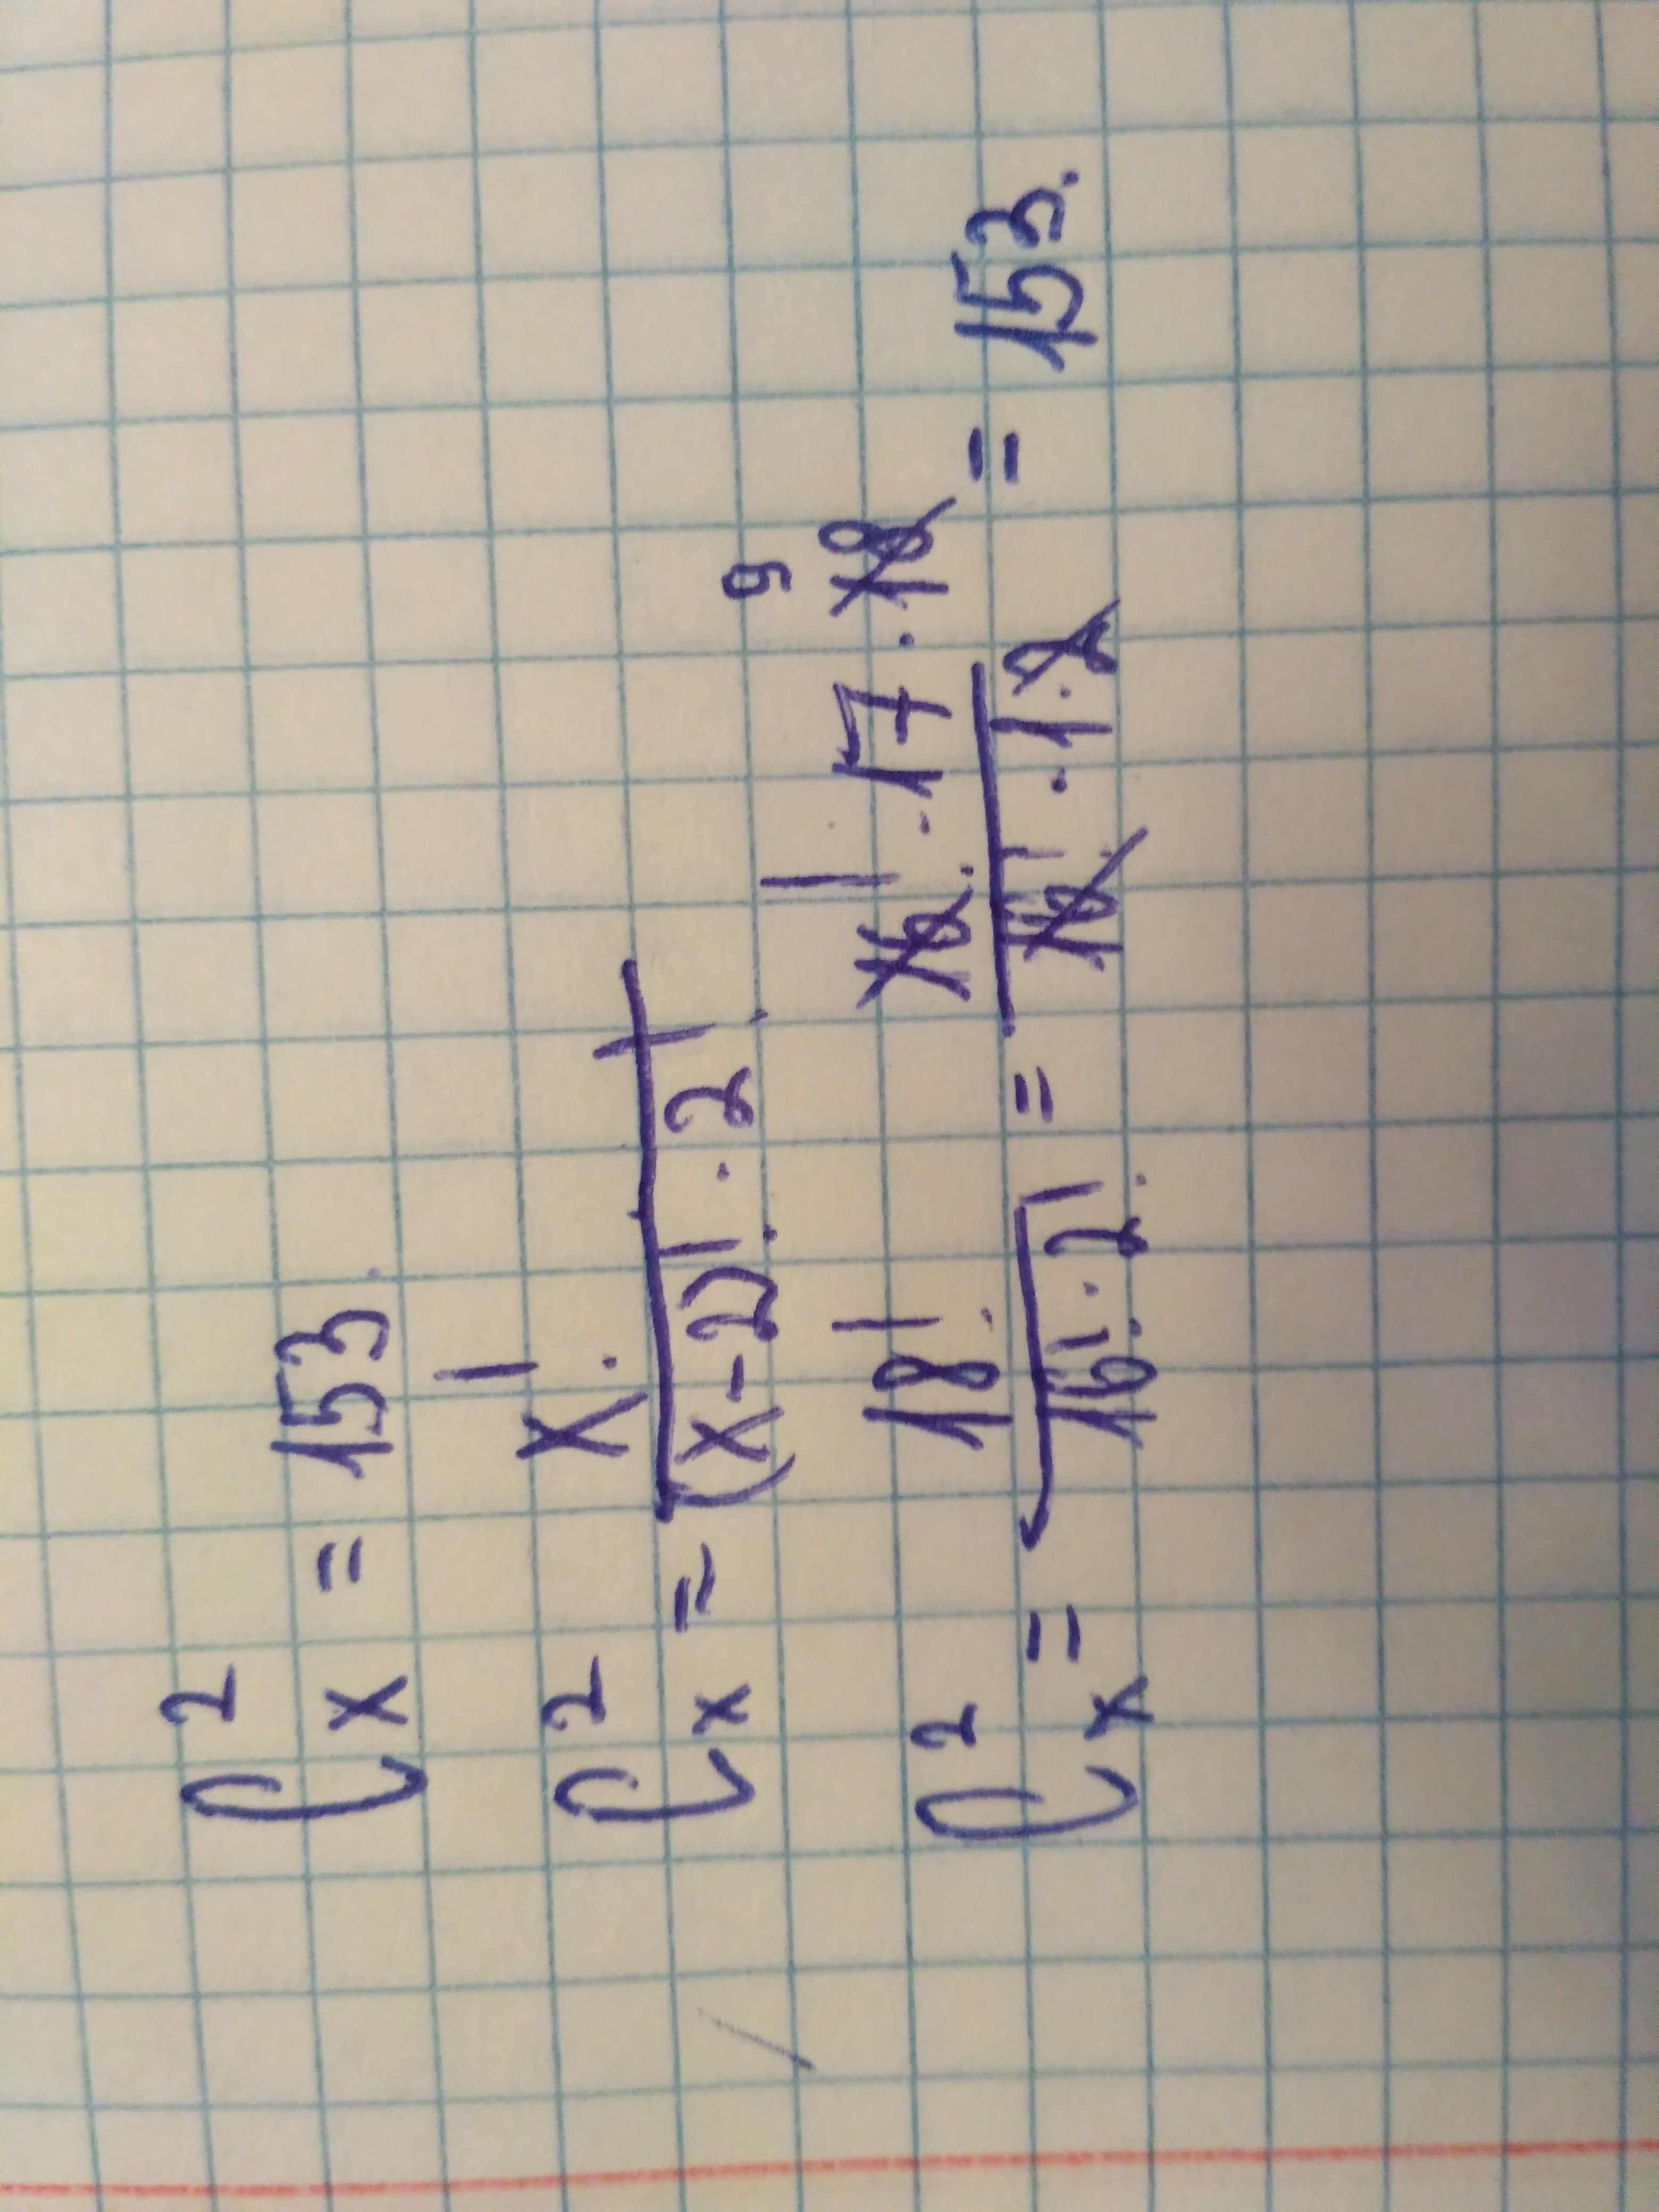 C²ₓ = 153.
C²ₓ = x! / (x-2)! · 2!
C²ₓ = 18! / 16! · 2! = 16! · 17 · 18 9 / 16! · 1 · 2 = 153.